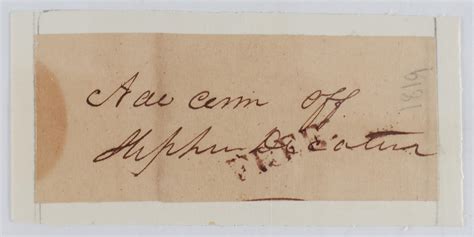 Nav comm off
Stephen Decatur
FREE
1819